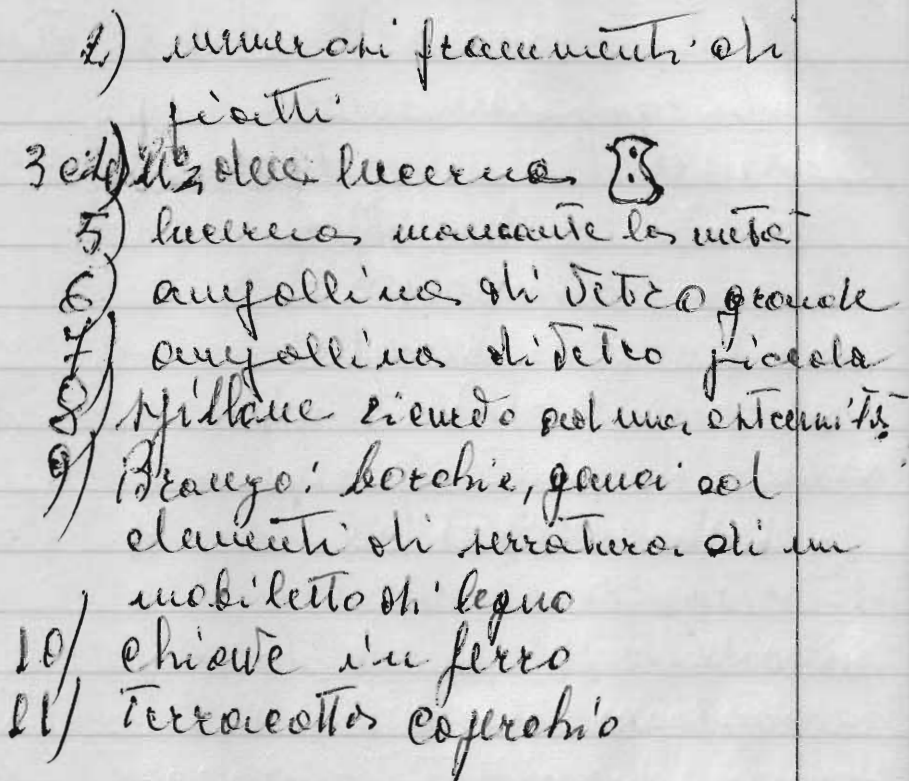 2) numerosi frammenti di
piatti
3 e 4) n° 2 lucerna
5) lucerna mancante la metà
6) ampollina di vetro grande
7) ampollina di vetro piccola
8) spillone ad una estremità
9) Bronzo: borchie, ganci ed
elementi di serratura di un
mobiletto di legno
10) chiave in ferro
11) Terracotta coperchio